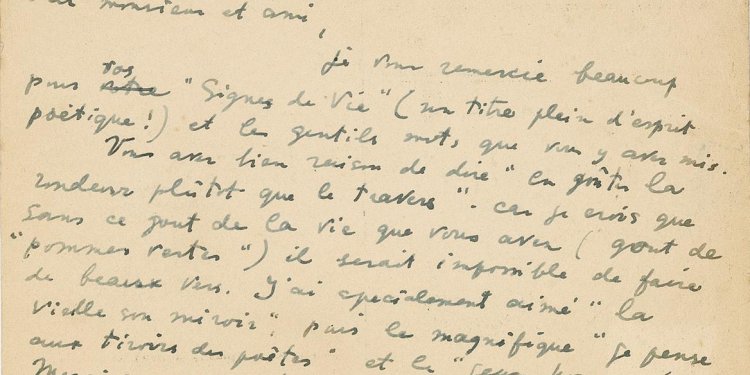 monsieur et ami,
je vous remercie beaucoup
pour vos "Signes de Vie" (un titre plein d'esprit
poètique!) et les gentils mots que vous y avez mis.
Vous avez bien raison de dire "En goûter la
rondeur plûtot que le travers" - car je crois que
sans ce gout de la vie que vous avez (gout de
"pommes vertes") il serait impossible de faire
de beaux vers. J'ai specialement aimé "la
vieille son miroir" puis le magnifique "je pense
aux tiroirs des poêtes" et le